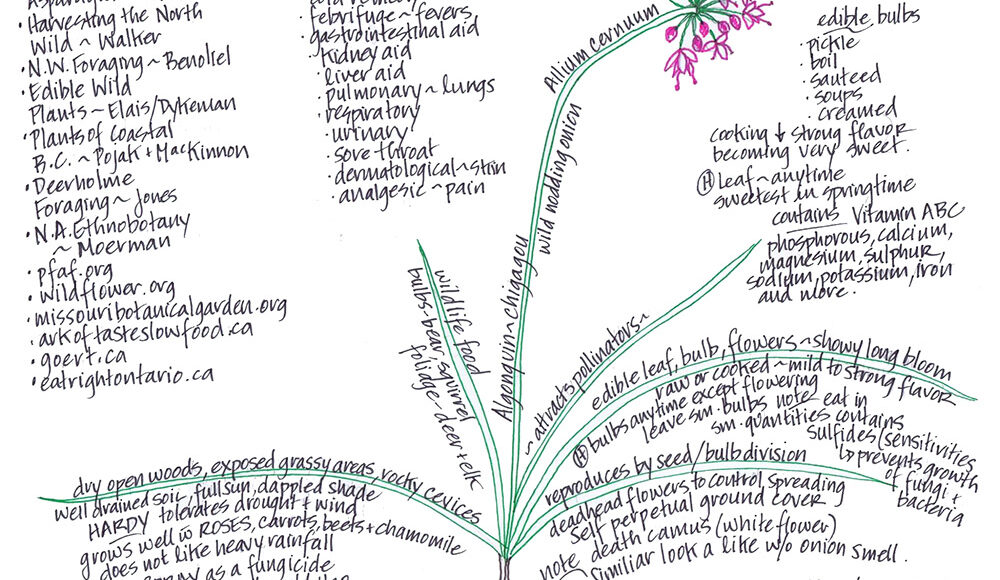 Harvesting the North
Wild ~ Walker
· N.W. Foraging ~ Benoliel
· Edible Wild
Plants ~ Elais/Dykeman
· Plants of Coastal
B.C. ~ Pojak + MacKinnon
· Deerholme
Foraging ~ Jones
· N.A. Ethnobotany
~ Moerman
· pfaf.org
· wildflower.org
· missouribotanicalgarden.org
· arkoftasteslowfood.ca
· goert.ca
· eatrightontario.ca
· febrifuge ~ fevers
· gastrointestinal aid
· kidney aid
· liver aid
· pulmonary ~ lungs
· respiratory
· urinary
· sore throat
· dermatological ~ skin
· analgesic ~ pain
Allium cernuum
wild nodding onion
Algonquin ~ chigagou
edible bulbs
· pickle
· boil
· sauteed
· soups
· creamed
cooking ↓ strong flavor
becoming very sweet.
Ⓗ Leaf ~ anytime
sweetest in springtime
contains Vitamin ABC
phosphorous, calcium,
magnesium, sulphur,
sodium, potassium, iron
and more.
wildlife food
bulbs - bear, squirrel
foliage - deer + elk
~ attracts pollinators ~
edible leaf, bulb, flowers ~ showy long bloom
raw or cooked ~ mild to strong flavor
Ⓗ bulbs anytime except flowering
leave sm. bulbs note eat in
sm. quantities contains
sulfides (sensitivities
↳ prevents growth
of fungi +
bacteria
reproduces by seed / bulb division
deadhead flowers to control spreading
self perpetual ground cover
note death camus (white flower)
similiar look a like w/o onion smell.
dry open woods, exposed grassy areas, rocky cevices
well drained soil, full sun, dappled shade
HARDY tolerates drought + wind
grows well w̄ ROSES, carrots, beets + chamomile
does not like heavy rainfall
as a fungicide